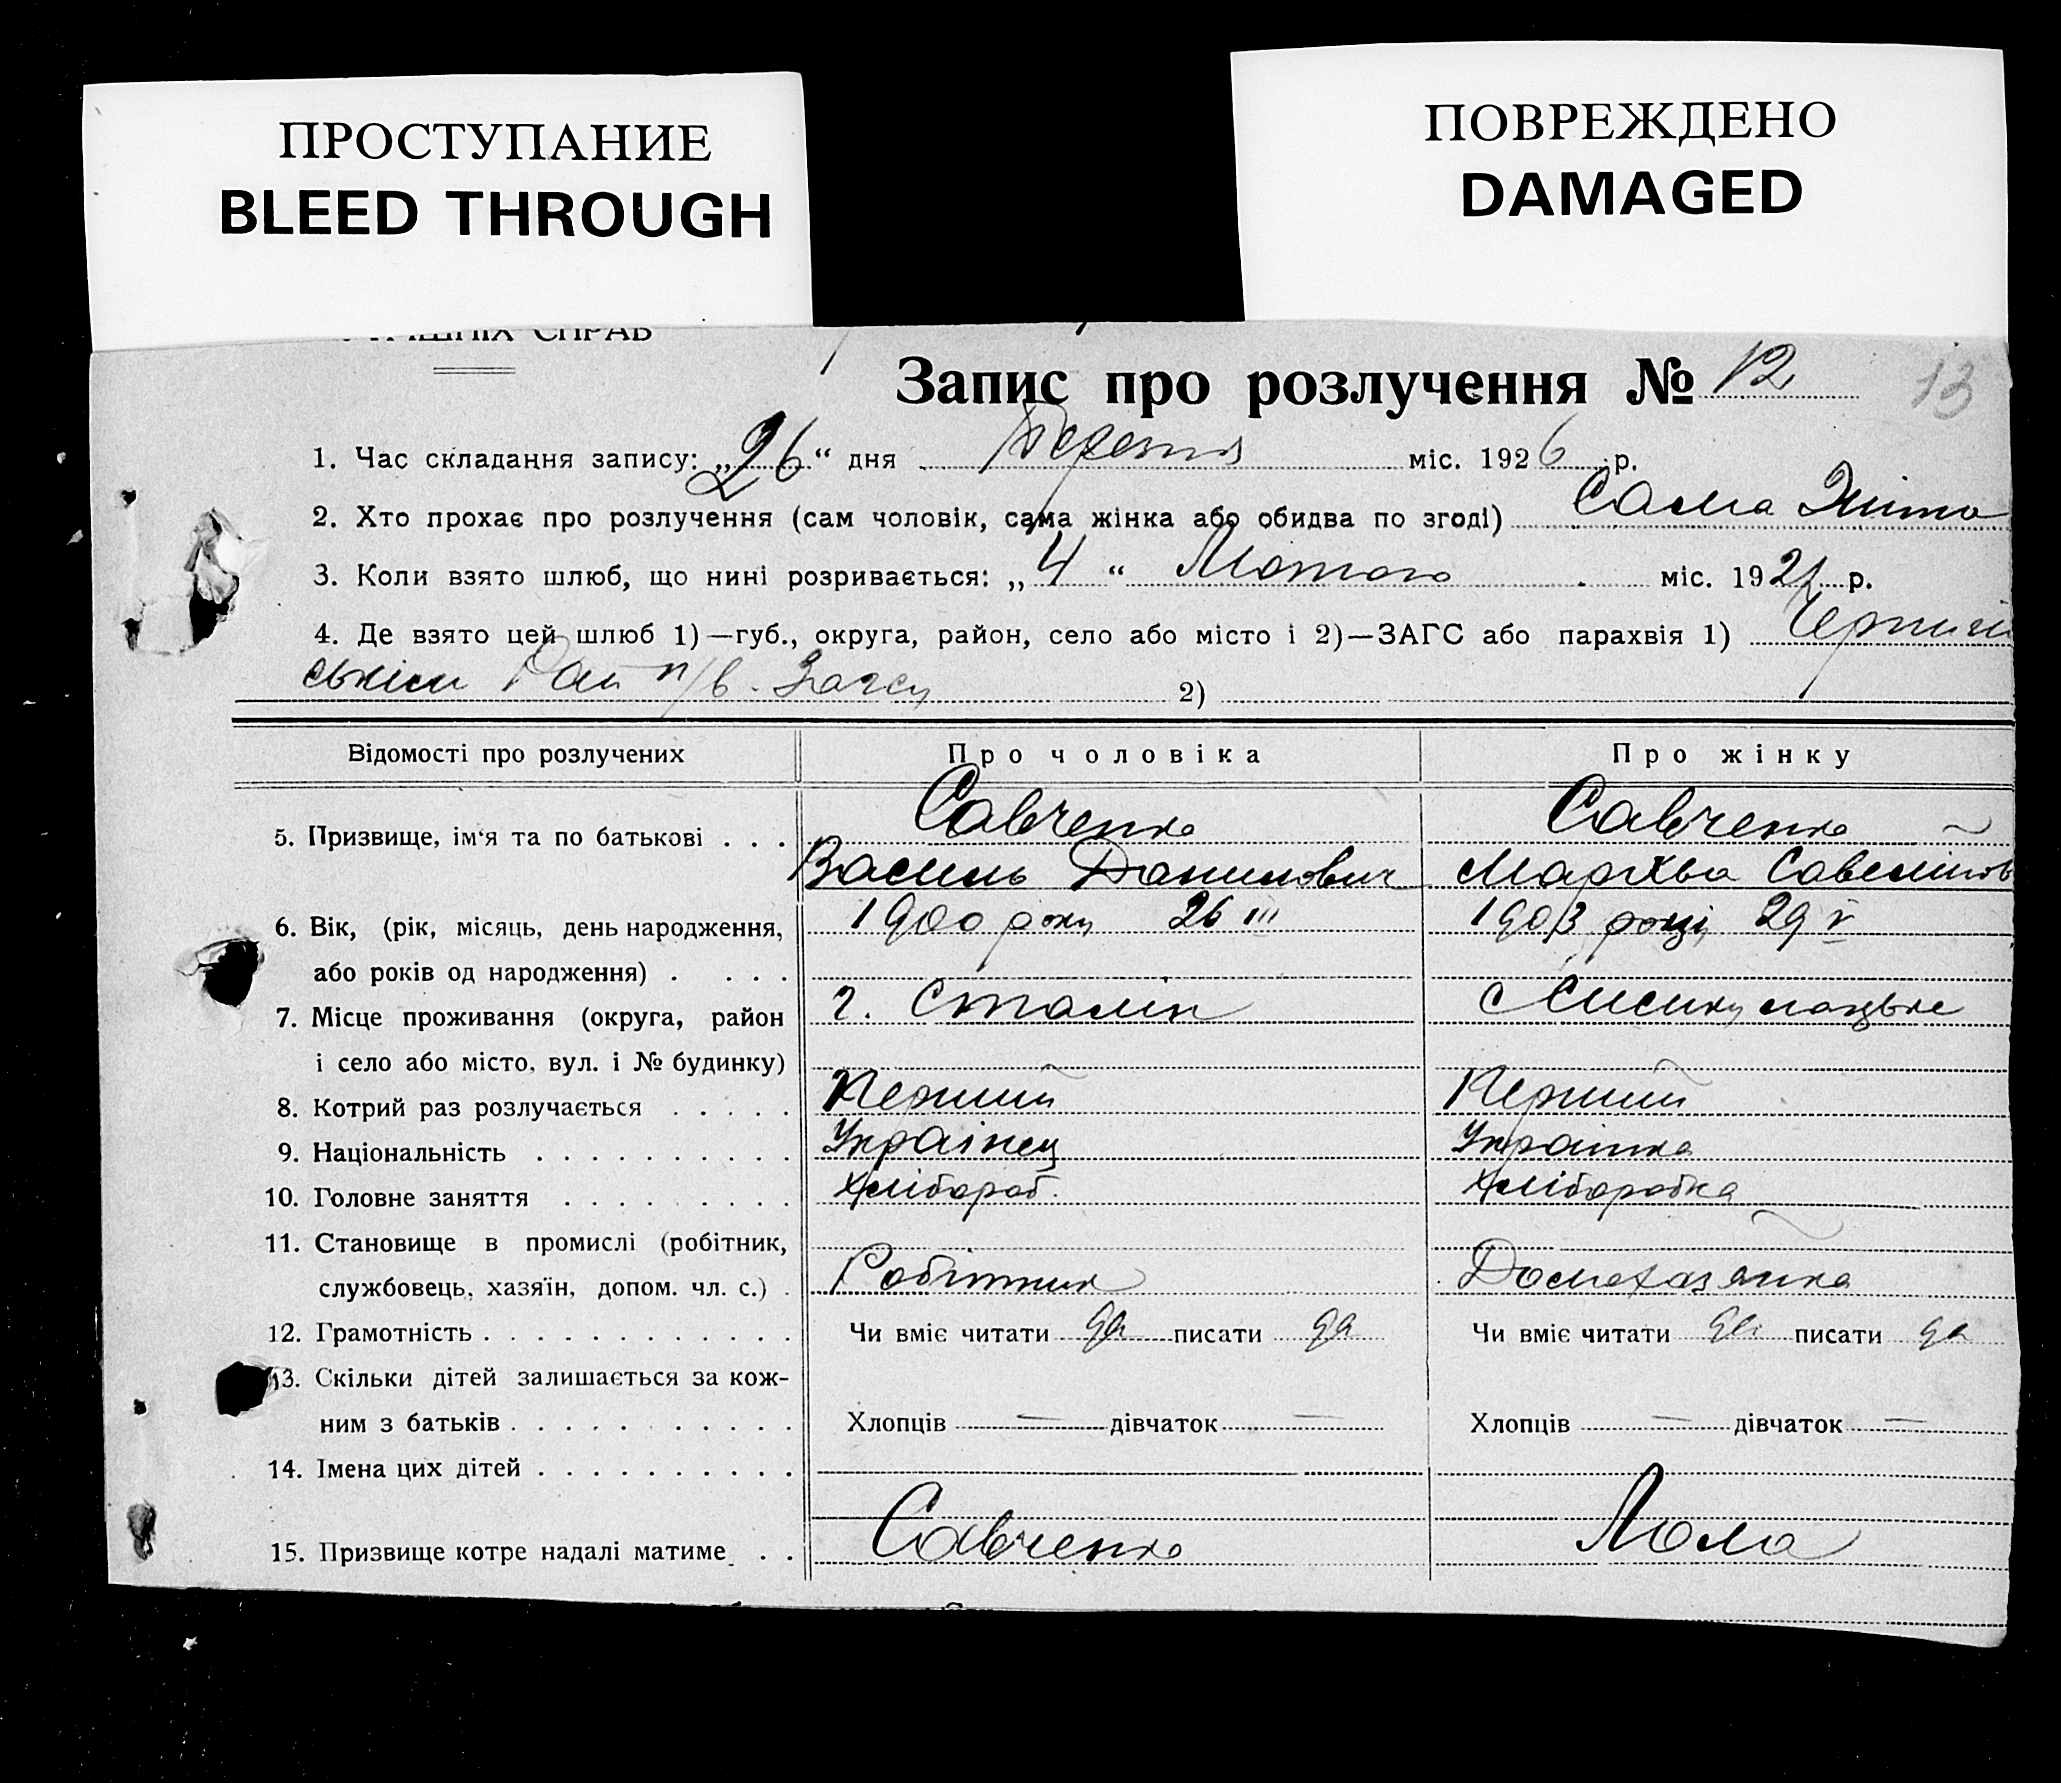 ПРОСТУПАНИЕ
BLEED THROUGH
ПОВРЕЖДЕНО
DAMAGED
СПРАВ
Запис про розлучення № 12 13
1. Час складання запису: „26“ дня Березня міс. 1926 р.
2. Хто прохає про розлучення (сам чоловік, сама жінка або обидва по згоді) Сама
3. Коли взято шлюб, що нині розривається: „4“ Лютого міс. 192 р.
4. Де взято цей шлюб 1)—губ., округа, район, село або місто і 2)—ЗАГС або парахвія 1)
ськім Рай п/в. Загсу 2)
Відомості про розлучених Про чоловіка Про жінку
Савченко Савченко
5. Призвище, ім‘я та по батькові . . .
Василь Данилович Мархва
6. Вік, (рік, місяць, день народження, 1900 року 26 III 1903 році 29 V
або років од народження) . . . .
7. Місце проживання (округа, район г. Сталін с
і село або місто, вул. і № будинку)
8. Котрий раз розлучається . . . . . Перший Перший
9. Національність . . . . . . . . . . Українец Українка
10. Головне заняття . . . . . . . . . Хлібороб. Хліборобка
11. Становище в промислі (робітник,
службовець, хазяїн, допом. чл. с.) . Робітник Домохазяйка
12. Грамотність . . . . . . . . . . . . Чи вміє читати да писати да Чи вміє читати да писати да
13. Скільки дітей залишається за кож-
ним з батьків . . . . . . . . . . . Хлопців — дівчаток — Хлопців — дівчаток —
14. Імена цих дітей . . . . . . . . . .
15. Призвище котре надалі матиме . . Савченко Лола